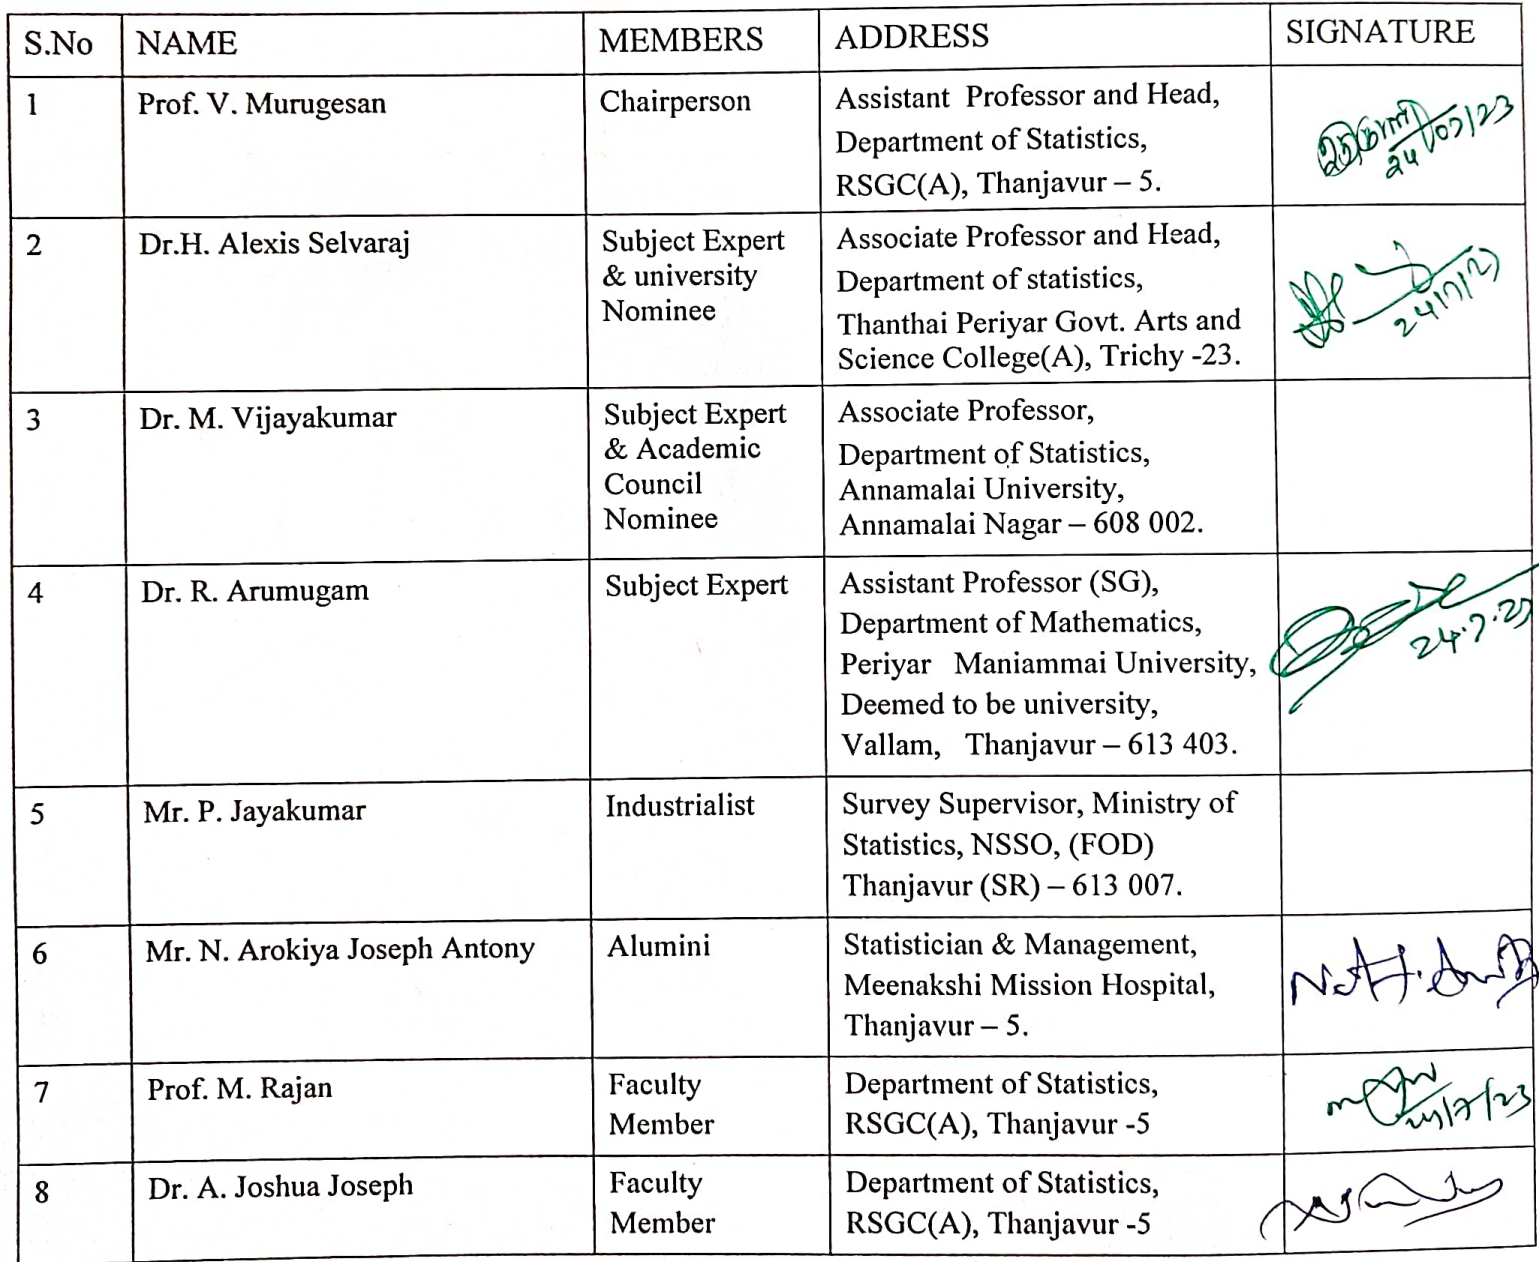 S.No NAME MEMBERS ADDRESS SIGNATURE
1 Prof. V. Murugesan Chairperson Assistant Professor and Head,
Department of Statistics,
RSGC(A), Thanjavur – 5.
24/07/23
2 Dr.H. Alexis Selvaraj Subject Expert Associate Professor and Head,
& university Department of statistics,
Nominee Thanthai Periyar Govt. Arts and
Science College(A), Trichy -23.
3 Dr. M. Vijayakumar Subject Expert Associate Professor,
& Academic Department of Statistics,
Council Annamalai University,
Nominee Annamalai Nagar – 608 002.
4 Dr. R. Arumugam Subject Expert Assistant Professor (SG),
Department of Mathematics,
Periyar Maniammai University,
Deemed to be university,
Vallam, Thanjavur – 613 403.
24.7.23
5 Mr. P. Jayakumar Industrialist Survey Supervisor, Ministry of
Statistics, NSSO, (FOD)
Thanjavur (SR) – 613 007.
6 Mr. N. Arokiya Joseph Antony Alumini Statistician & Management,
Meenakshi Mission Hospital,
Thanjavur – 5.
7 Prof. M. Rajan Faculty Department of Statistics,
Member RSGC(A), Thanjavur -5
24/7/23
8 Dr. A. Joshua Joseph Faculty Department of Statistics,
Member RSGC(A), Thanjavur -5